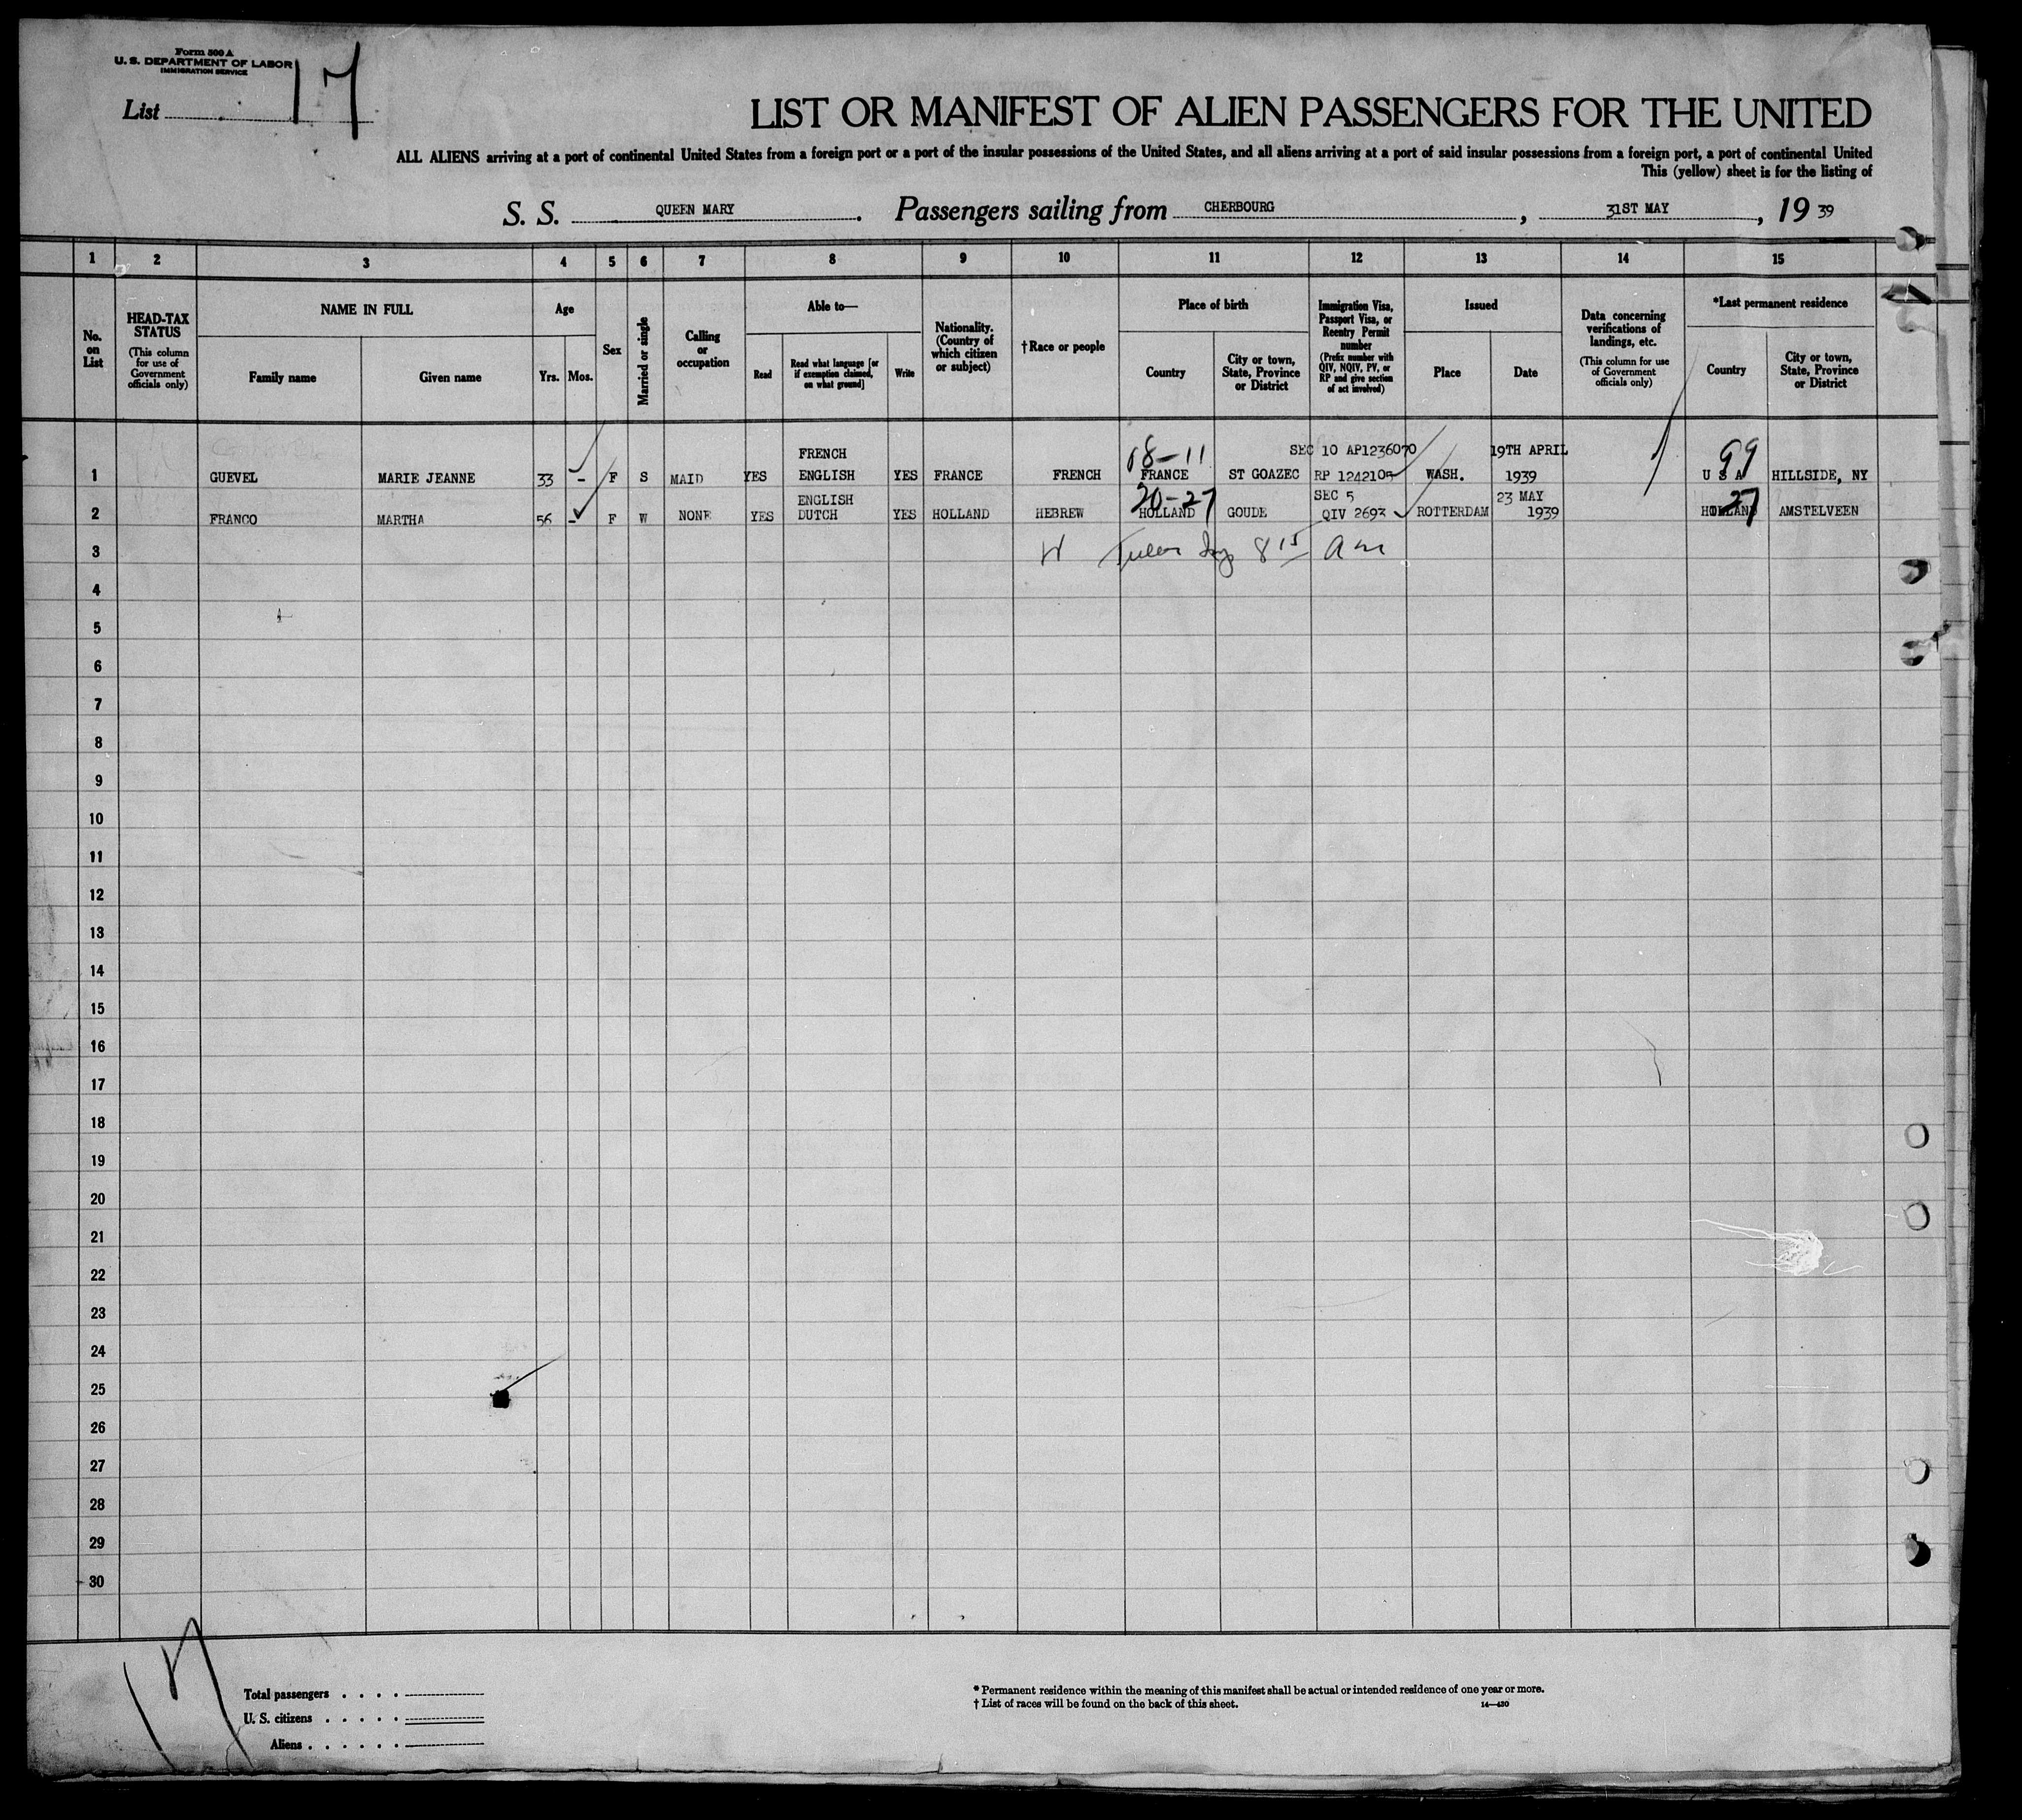 Form 500 A
U. S. DEPARTMENT OF LABOR
IMMIGRATION SERVICE
List 17
LIST OR MANIFEST OF ALIEN PASSENGERS FOR THE UNITED
ALL ALIENS arriving at a port of continental United States from a foreign port or a port of the insular possessions of the United States, and all aliens arriving at a port of said insular possessions from a foreign port, a port of continental United
This (yellow) sheet is for the listing of
S. S. QUEEN MARY. Passengers sailing from CHERBOURG, 31ST MAY, 19 39
1 2 3 4 5 6 7 8 9 10 11 12 13 14 15
No. on List
HEAD-TAX STATUS
(This column for use of Government officials only)
NAME IN FULL
Family name
Given name
Age
Yrs. Mos.
Sex
Married or single
Calling or occupation
Able to—
Read
Read what language [or if exemption claimed, on what ground]
Write
Nationality. (Country of which citizen or subject)
†Race or people
Place of birth
Country
City or town, State, Province or District
Immigration Visa, Passport Visa, or Reentry Permit number
(Prefix number with QIV, NQIV, PV, or RP and give section of act involved)
Issued
Place
Date
Data concerning verifications of landings, etc.
(This column for use of Government officials only)
*Last permanent residence
Country
City or town, State, Province or District
FRENCH 08-11 SEC 10 AP1236070 19TH APRIL 99
1 GUEVEL MARIE JEANNE 33 - F S MAID YES ENGLISH YES FRANCE FRENCH FRANCE ST GOAZEC RP 1242105 WASH. 1939 U S A HILLSIDE, NY
ENGLISH 20-27 SEC 5 23 MAY 27
2 FRANCO MARTHA 56 - F W NONE YES DUTCH YES HOLLAND HEBREW HOLLAND GOUDE QIV 2693 ROTTERDAM 1939 HOLLAND AMSTELVEEN
3 8 15 am
4
5
6
7
8
9
10
11
12
13
14
15
16
17
18
19
20
21
22
23
24
25
26
27
28
29
30
17
Total passengers . . . .
U. S. citizens . . . . .
Aliens . . . . . .
* Permanent residence within the meaning of this manifest shall be actual or intended residence of one year or more.
† List of races will be found on the back of this sheet. 14—430